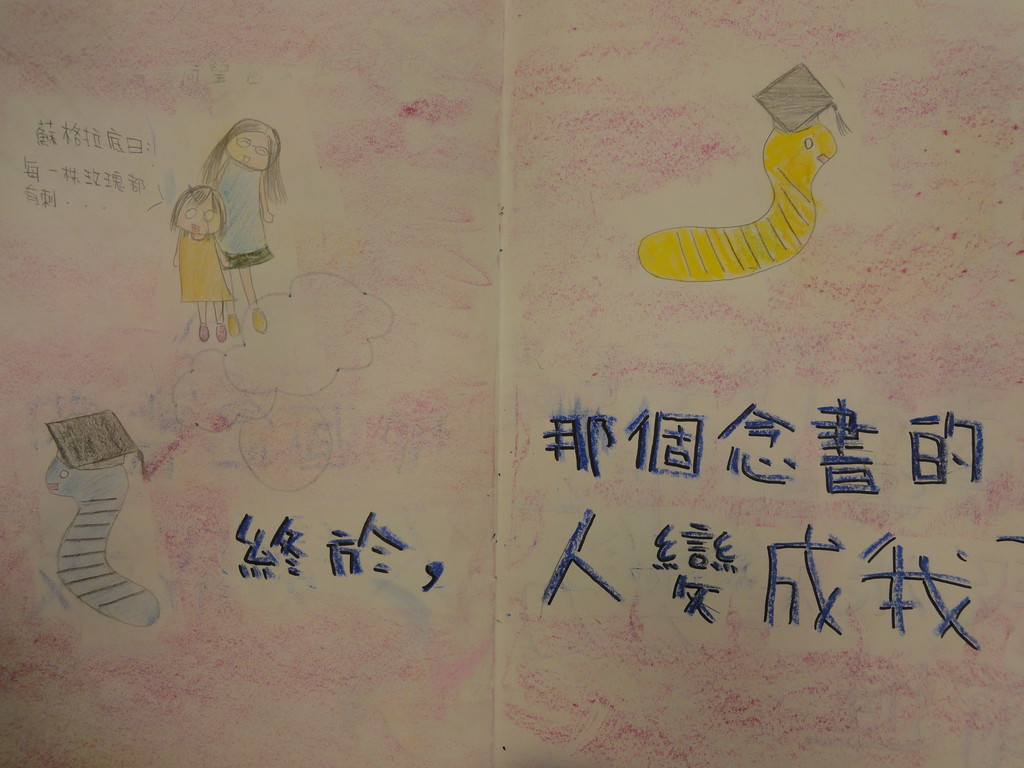 蘇格拉底曰:
每一株玫瑰都
有刺...
終於,
那個念書的
人變成我